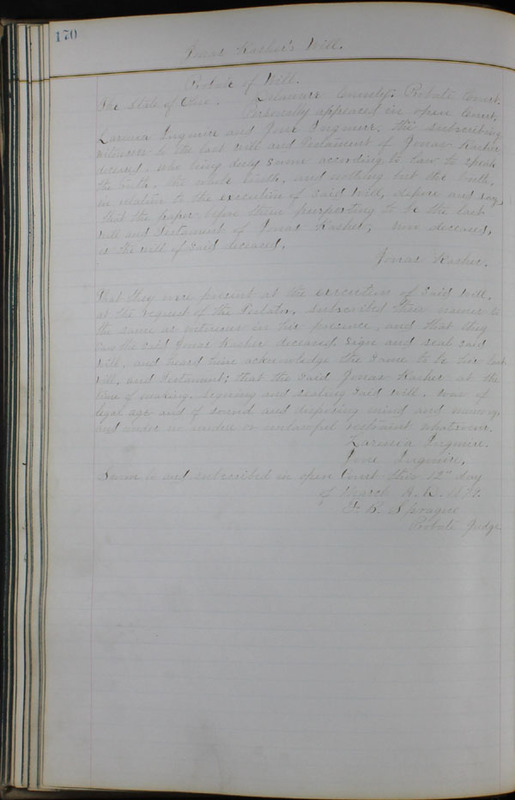 170
Jonas Kacher's Will.
Probate of Will.
The State of Ohio. Delaware County, Probate Court.
Personally appeared in open Court,
and Jane the subscribing
witnesses to the last Will and Testament of Jonas Kacher
deceased, who being duly sworn according to law to speak
the truth, the whole truth, and nothing but the truth,
in relation to the execution of said Will, depose and say,
that the paper before them purporting to be the last
Will and Testament of Jonas Kacher, now deceased,
is the will of said deceased,
Jonas Kacher.
That they were present at the execution of said Will,
at the request of the Testator, subscribed their names to
the same as witnesses in his presence, and that they
saw the said Jonas Kacher deceased, sign and seal said
Will, and heard him acknowledge the same to be his last
Will, and Testament; that the said Jonas Kacher at the
time of making, signing and sealing said will, was of
legal age and of sound and disposing mind and memory
and under no undue or unlawful restraint whatsoever.
Jane
Sworn to and subscribed in open Court this 12th day
of March A.D. 1877.
F. B. Sprague
Probate Judge